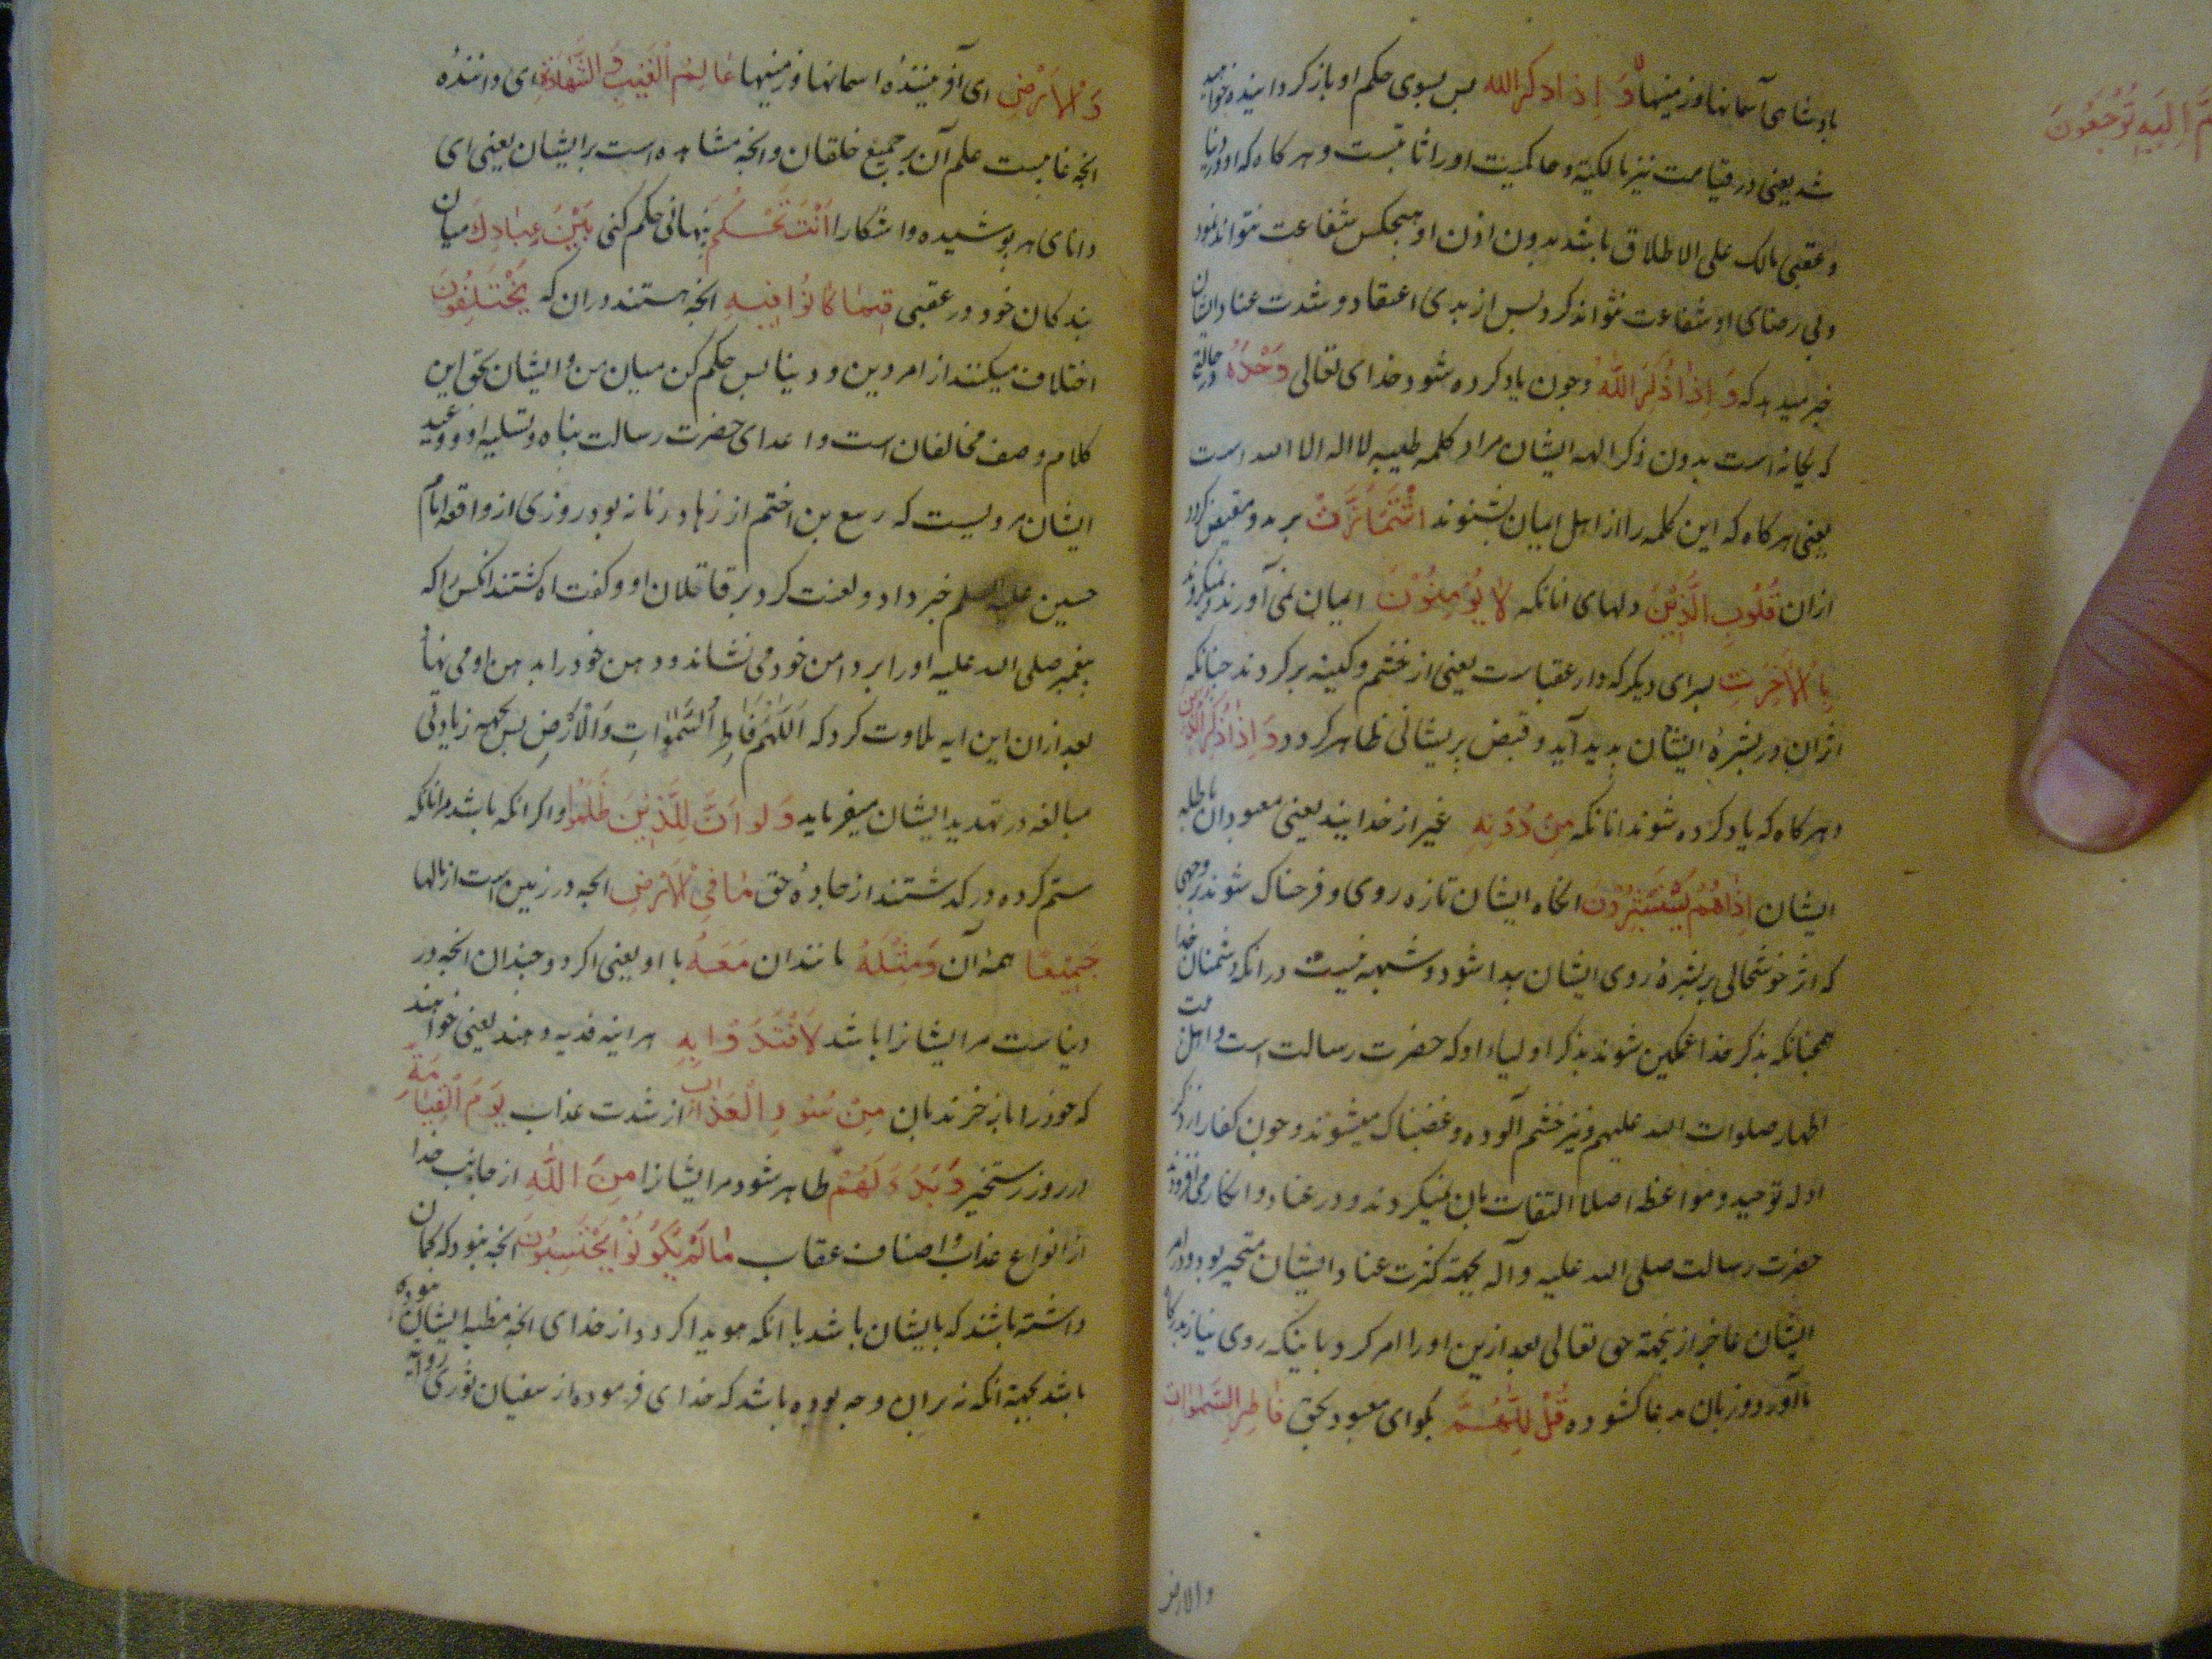 ثم الیه ترجعون
بادشاهی آسمانها و زمینها و اذا ذکر الله بس بسوی حکم او باز کردانیده خواهید
شد یعنی در قیامت نیز مالکیة و حاکمیت او را ثابتست و هر کاه که او در دنیا
و عقبی مالک علی الاطلاق باشد بدون اذن او هیجکس شفاعت نتواند نمود
و بی رضای او شفاعت نتواند کرد و بس از بدی اعتقاد و شدت عناد ایشان
خبر میدهد که وَ اِذَا ذُکِرَ اللهُ و جون یاد کرده شود خدای تعالی وَحْدَهُ در حالتی
که یکانه است بدون ذکر الهه ایشان مراد کلمه طیبه لا اله الا الله است
یعنی هر کاه که این کلمه را از اهل ایمان بشنوند اشْمَأَزَّتْ برمد و منقبض کردد
ازان قُلُوبُ الَّذِیْنَ دلهای انانکه لا یُؤْمِنُوْنَ ایمان نمی آورند و نمیکروند
بِالْاٰخِرَتِ بسرای دیکر که دار عقباست یعنی از خشم و کینه بر کردند جنانکه
اثر ان در بشرهٔ ایشان بدید آید و قبض بریشانی ظاهر کردد وَ اِذَا ذُکِرَ الَّذِیْنَ
و هر کاه که یاد کرده شوند انانکه مِنْ دُوْنِهٖ غیر از خدایند یعنی معبودان باطله
ایشان اِذَا هُمْ یَسْتَبْشِرُوْنَ انکاه ایشان تازه روی و فرحناک شوند بر وجهی
که اثر خوشحالی بر بشرهٔ روی ایشان بیدا شود و شبهه نیست در انکه دشمنان خدا
همجنانکه بذکر خدا غمکین شوند بذکر اولیاء او که حضرت رسالت است و اهل بیت
اطهار صلوات الله علیهم نیز خشم آلوده و غضبناک میشوند و جون کفار از ذکر
ادله توحید و مواعظ اصلا التفات بان نمیکردند و در عناد و انکار می افزودند
حضرت رسالت صلی الله علیه و آله بجهة کثرت عناد ایشان متحیر بود و در امر
ایشان عاجز از بجهة حق تعالی بعد ازین او را امر کرد باینکه روی نیاز بدرکاه
ما آورد و زبان بدعا کشوده قُلِ اللّٰهُمَّ بکو ای معبود بحق فَاطِرَ السَّمٰوَاتِ
والارض
وَ الْاَرْضِ ای آفرینندهٔ اسمانها و زمینها عَالِمُ الْغَیْبِ وَ الشَّهَادَةِ ای دانندهٔ
انجه غایبست علم آن بر جمیع خلقان و انجه مشاهده است بر ایشان یعنی ای
دانای هر بوشیده و اشکارا اَنْتَ تَحْکُمُ بنهائی حکم کنی بَیْنَ عِبَادِکَ میان
بندکان خود در عقبی فِیْمَا کَانُوْا فِیْهِ انجه هستند در ان که یَخْتَلِفُوْنَ
اختلاف میکنند از امر دین و دنیا بس حکم کن میان من و ایشان بحق این
کلام وصف مخالفان است و اعدای حضرت رسالت بناه و تسلیه او و وعید
ایشان مرویست که ربیع بن اختم از زهاد زمانه بود روزی از واقعه امام
حسین علیه السلم خبر داد و لعنت کرد بر قاتلان او و کفت اه کشتند انکس را که
بیغمبر صلی الله علیه او را بر دامن خود می نشاند و دهن خود را بدهن او می نهاد
بعد ازان این ایه تلاوت کرد که اَللّٰهُمَّ فَاطِرَ السَّمٰوَاتِ وَالْاَرْضِ بس بجهة زیادتی
مبالغه در تهدید ایشان میفرماید وَ لَوْ اَنَّ لِلَّذِیْنَ ظَلَمُوا و اکر انکه باشد مر انانکه
ستم کرده در کذشتند از جادهٔ حق مَا فِی الْاَرْضِ انجه در زمین است از مالها
جَمِیْعًا همهٔ آن وَ مِثْلَهُ مانند ان مَعَهُ با او یعنی اکر دو جندان انجه در
دنیاست مر ایشانرا باشد لَافْتَدَوْا بِهٖ هر اینه فدیه دهند یعنی خواهند
که خود را باز خرند بان مِنْ سُوْءِ الْعَذَابِ از شدت عذاب یَوْمَ الْقِیَامَةِ
در روز رستخیز وَ بَدَا لَهُمْ ظاهر شود مر ایشانرا مِنَ اللّٰهِ از جانب خدا
از انواع عذاب و اصناف عقاب مَا لَمْ یَکُوْنُوْا یَحْتَسِبُوْنَ انجه نبود که کمان
داشته باشند که بایشان باشد یا انکه هویدا کردد از خدای انجه مظنه ایشان نبوده
باشد بجهة انکه نه بران وجه بوده باشد که خدای فرموده از سفیان ثوری روایة